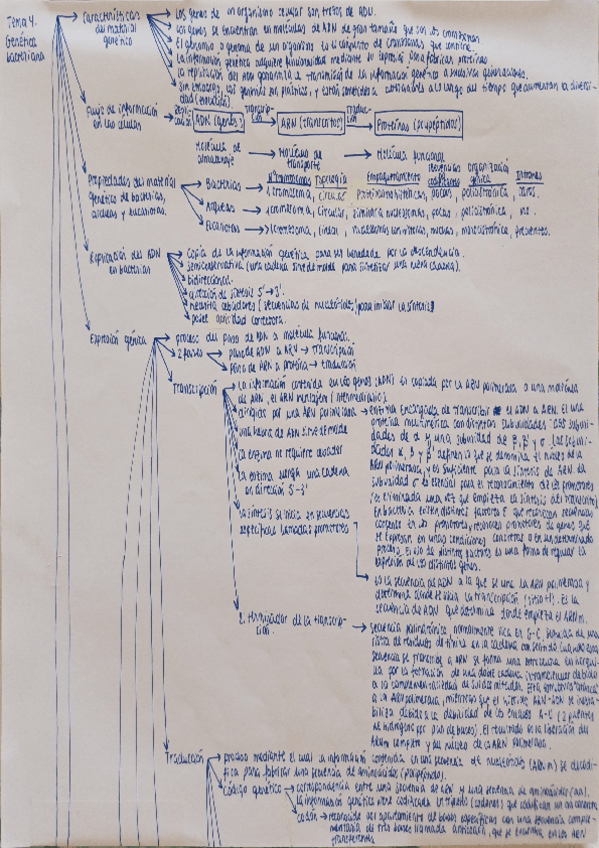 Tema 4.
Genética
bacteriana
Características
del material
genético
Los genes de un organismo celular son trozos de ADN.
Los genes se encuentran en moléculas de ADN de gran tamaño que son los cromosomas
El genoma de un organismo es el conjunto de cromosomas que contiene.
La información genética adquiere funcionalidad mediante su expresión para fabricar proteínas
La replicación del ADN garantiza la transmisión de la información genética a sucesivas generaciones.
Sin embargo, los genomas son plásticos, y están sometidos a a lo largo del tiempo que aumentan la diversi-
dad
Flujo de información
en las células
ADN (genes)
ARN (transcritos)
Proteínas (polipéptidos)
Molécula de
almacenaje
Molécula de
transporte
Molécula funcional
Propiedades del material
genético de bacterias,
arqueas y eucariotas.
Nº cromosomas
Topología
Empaquetamiento
secuencias
organización
génica
Intrones
Bacterias
1 cromosoma, circular, pocas, policistrónica, raros.
Arqueas
1 cromosoma, circular, pocas, policistrónica, no.
Eucariotas
lineal, nucleosomas con histonas, muchas, monocistrónica, presentes.
Replicación del ADN
en bacterias
copia de la información genética para ser heredada por la descendencia.
semiconservativa (una cadena sirve de molde para sintetizar una nueva cadena).
bidireccional.
dirección de síntesis 5' → 3'.
necesita cebadores (secuencias de nucleótidos) para iniciar la síntesis
posee actividad correctora.
Expresión génica
proceso del paso de ADN a molécula funcional.
2 pasos
paso de ADN a ARN → transcripción
paso de ARN a proteína → traducción
Transcripción
La información contenida en los genes (ADN) es copiada por la ARN polimerasa a una molécula
de ARN, el ARN mensajero (intermediario).
dirigida por una ARN polimerasa
una hebra de ADN sirve de molde
la enzima no requiere cebador
la enzima una cadena
en dirección 5'-3'
la síntesis se inicia en secuencias
específicas llamadas promotores
enzima encargada de transcribir el ADN a ARN. Es una
proteína multimérica con distintas subunidades: dos subuni-
dades de α y una subunidad de β, β' y σ. Las subuni-
dades α, β y β' definen lo que se denomina el núcleo de la
ARN polimerasa, y es suficiente para la síntesis de ARN. La
subunidad σ es esencial para el reconocimiento de los promotores
(es eliminada una vez que empieza la síntesis del transcrito).
En bacterias existen distintos factores σ que reconocen secuencias
en los promotores, reconocen promotores de genes que
se expresan en unas condiciones concretas o en un determinado
proceso. El uso de distintos factores es una forma de regular la
expresión de los distintos genes.
es la secuencia de ADN a la que se une la ARN polimerasa y
determina dónde se inicia la transcripción (sitio +1). Es la
secuencia de ADN que determina dónde empieza el ARNm.
2. Terminador de la transcrip-
ción.
secuencia palindrómica normalmente rica en G-C, seguida de una
de residuos de timina en la cadena con sentido. Cuando esta
secuencia se transcribe a ARN se forma una estructura en horqui-
lla por la formación de una doble cadena intramolecular debido
a la complementariedad de sus dos mitades. Esta estructura
a la ARN polimerasa, mientras que el híbrido ARN-ADN se desesta-
biliza debido a la debilidad de los enlaces A-U (2 puentes
de hidrógeno por par de bases). El resultado es la liberación del
ARNm completo y del núcleo de la ARN polimerasa.
Traducción
proceso mediante el cual la información contenida en una secuencia de nucleótidos (ARNm) se decodi-
fica para fabricar una secuencia de aminoácidos (polipéptido).
código genético
correspondencia entre una secuencia de ADN y una secuencia de aminoácidos (aa).
la información genética viene codificada en tripletes (codones) que codifican un aa concreto
codón → reconocido por apareamiento de bases específicas con una secuencia comple-
mentaria de tres bases llamada anticodón, que se encuentra en los ARN
transferentes